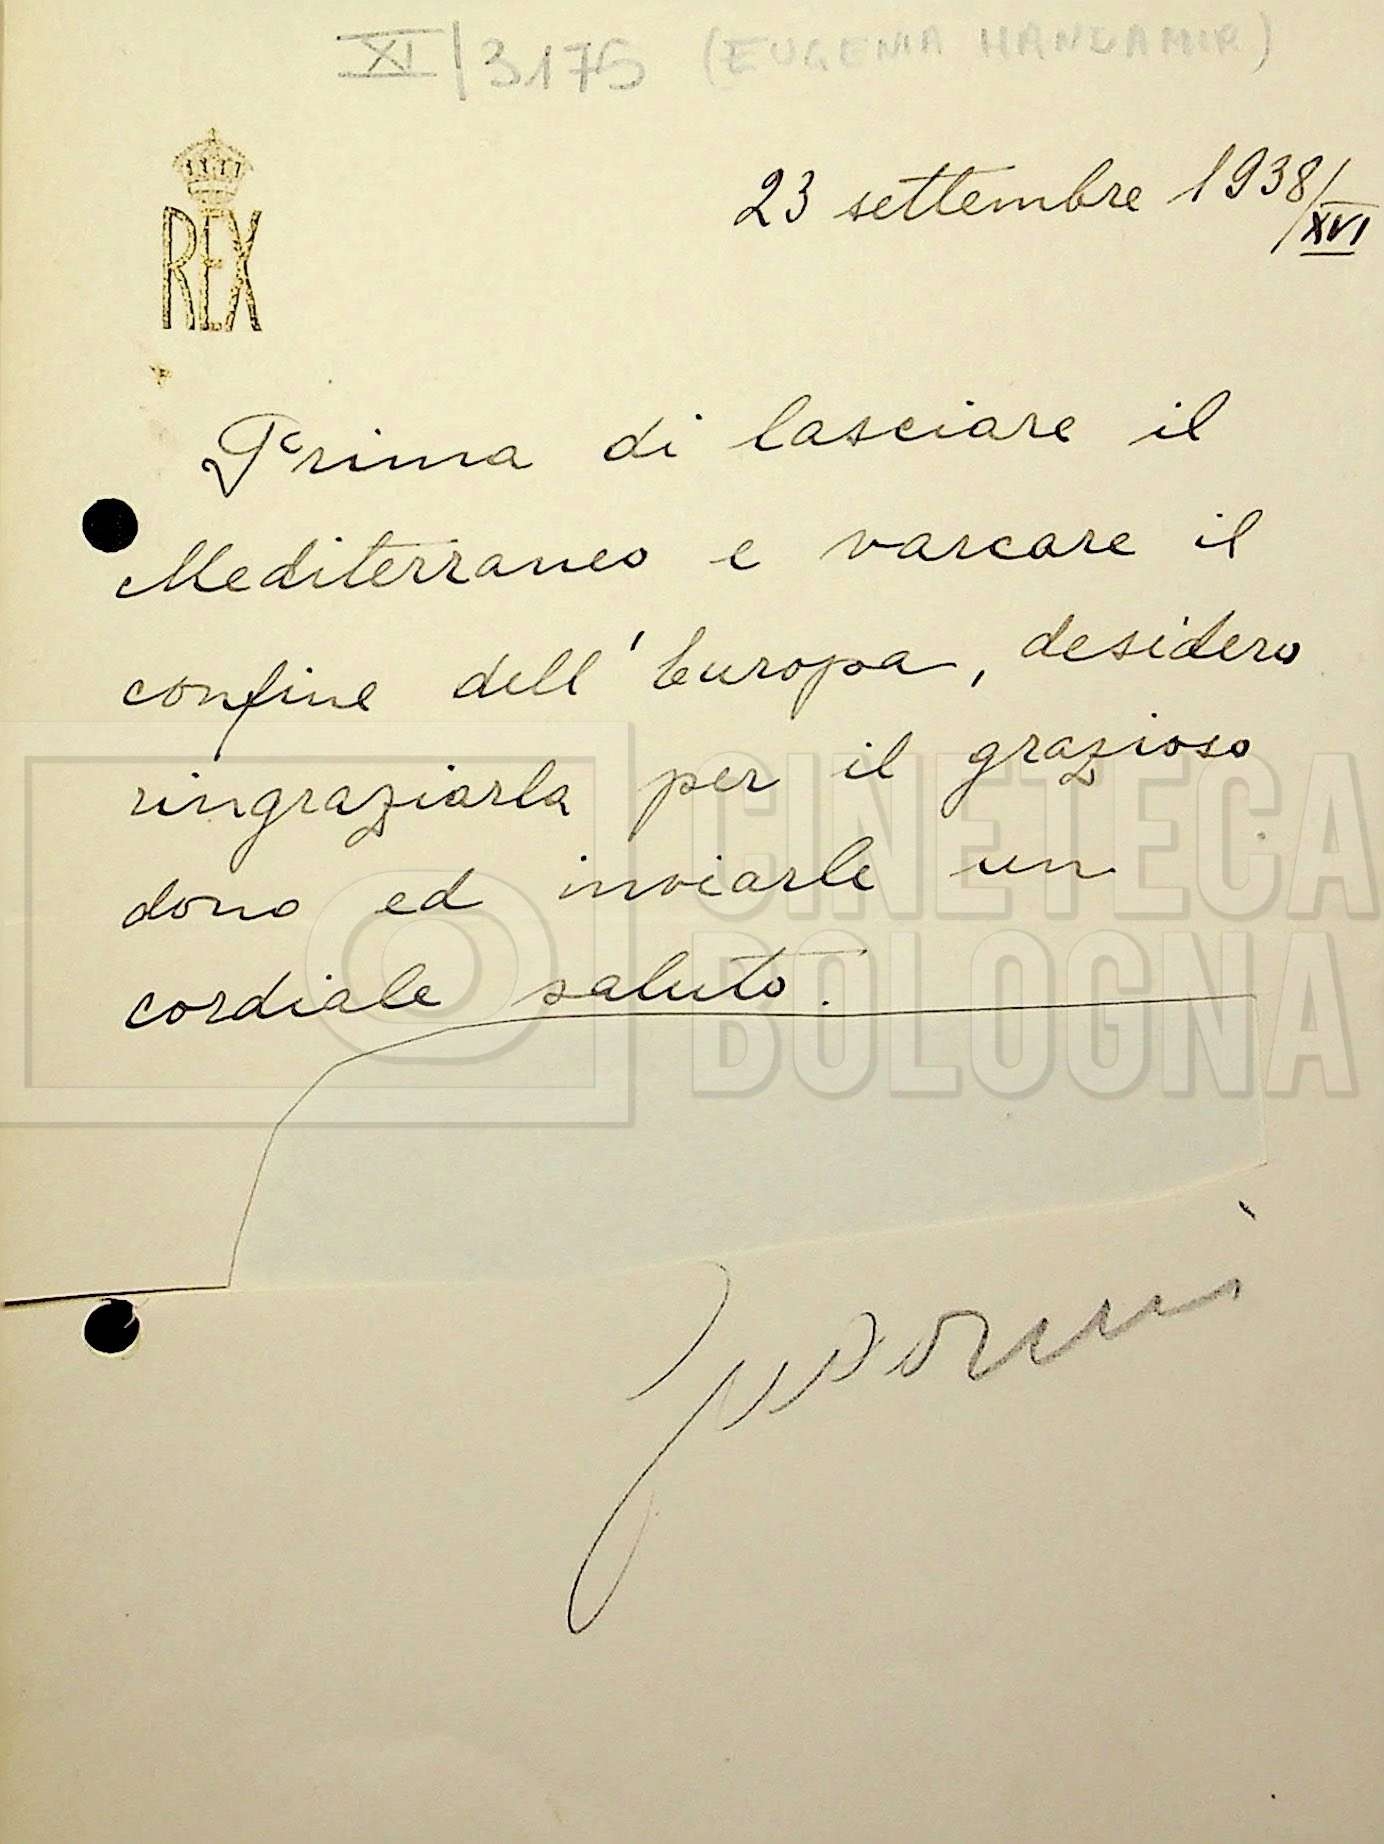 XI/3175 (EUGENIA HANDAMIR)
REX
23 settembre 1938/XVI
Prima di lasciare il
Mediterraneo e varcare il
confine dell'Europa, desidero
ringraziarla per il grazioso
dono ed inviarle un
cordiale saluto.
CINETECA
BOLOGNA